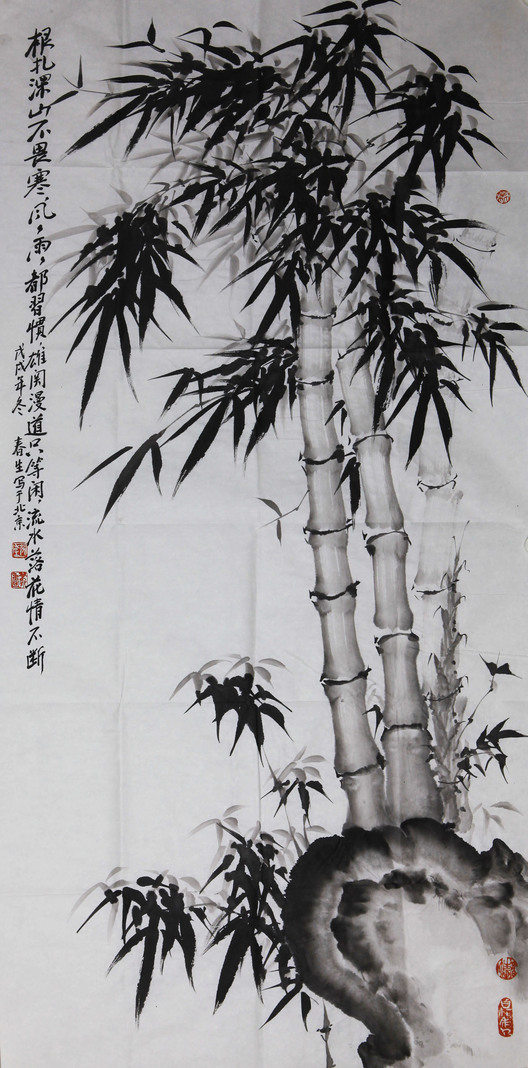 根扎深山不畏寒风风雨雨都習慣雄関漫道只等闲流水落花情不断
戊戌年冬 春生写于北京